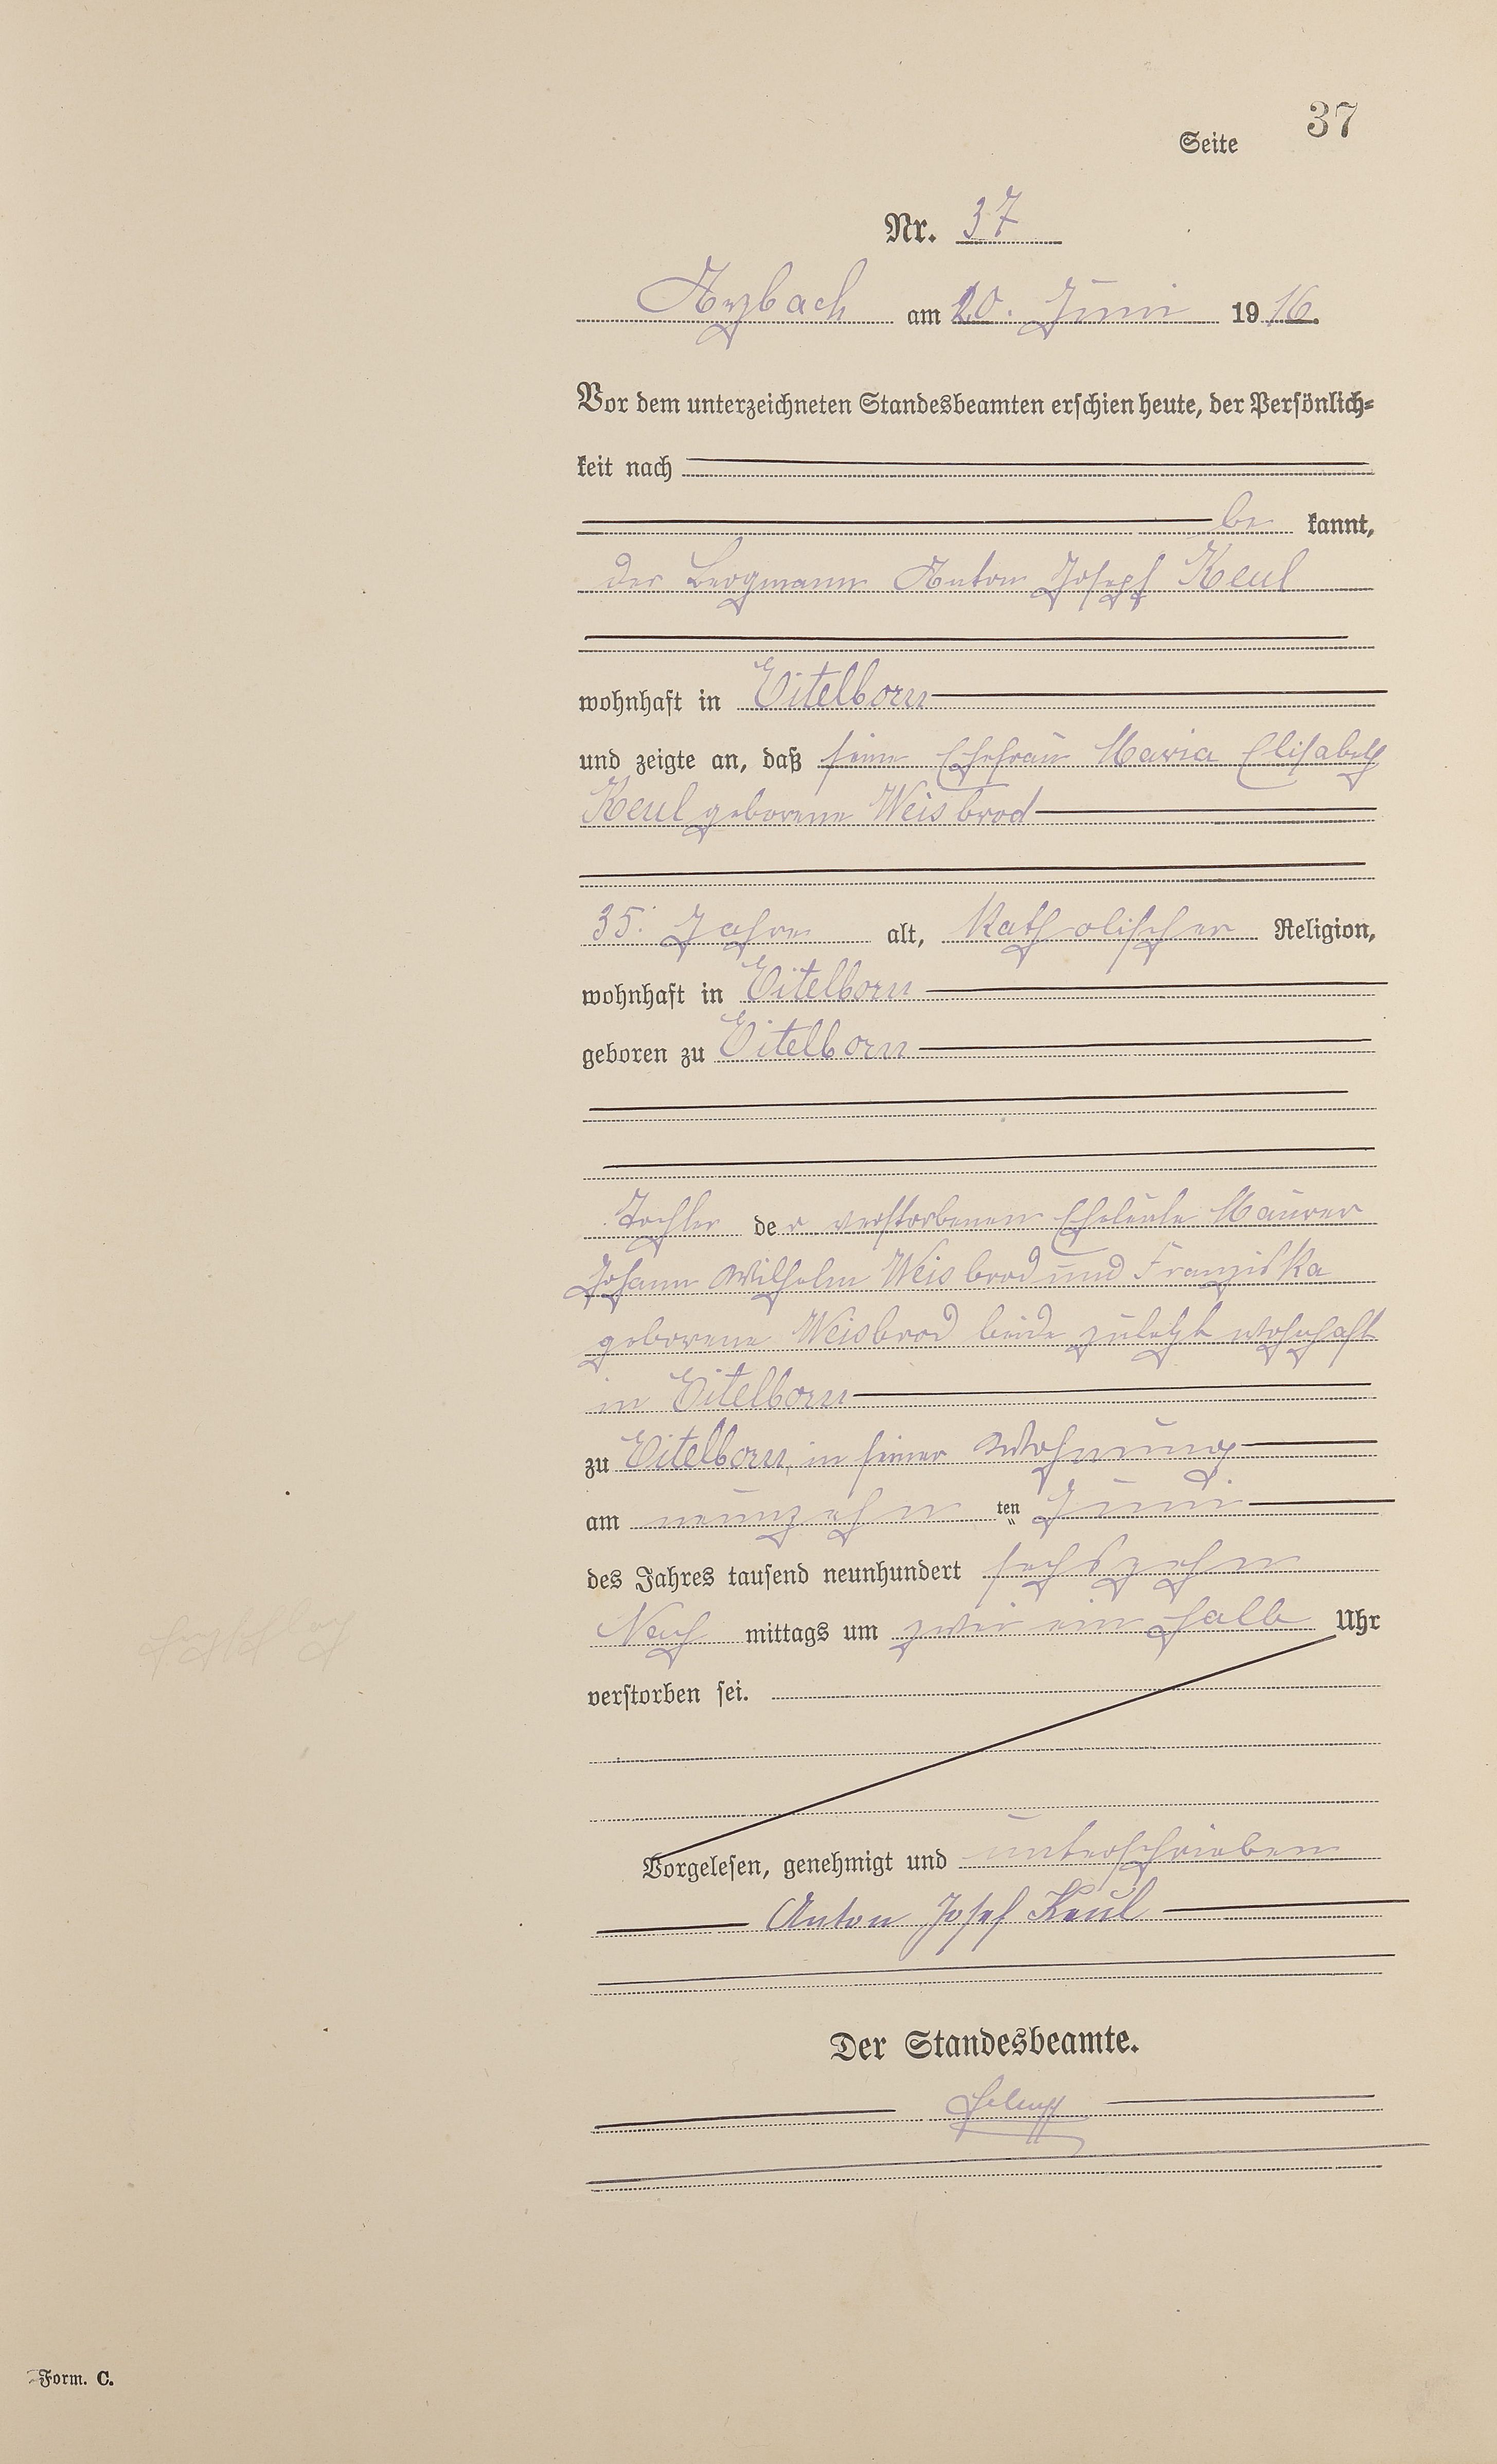 Seite 37
Nr. 37
Arzbach am 20. Juni 1916.
Vor dem unterzeichneten Standesbeamten erschien heute, der Persönlich-
keit nach
be kannt,
der Bergmann Anton Joseph Keul
wohnhaft in Eitelborn
und zeigte an, daß seine Ehefrau Maria Elisabeth
Keul geborene Weisbrod
35 Jahre alt, Katholischer Religion,
wohnhaft in Eitelborn
geboren zu Eitelborn
Tochter der verstorbenen Eheleute Maurer
Johann Wilhelm Weisbrod und Franziska
geborene Weisbrod beide zuletzt wohnhaft
in Eitelborn
zu Eitelborn, in seiner Wohnung
am neunzehn ten Juni
des Jahres tausend neunhundert sechszehn
Nach mittags um zwei ein halb Uhr
verstorben sei.
Herzschlag
Vorgelesen, genehmigt und unterschrieben
Anton Josef Keul
Der Standesbeamte.
Form. C.